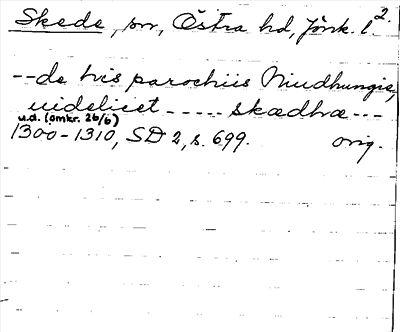 Skede, sn, Östra hd, Jönk. l. 2.
--de his parochiis Niudhungie,
uidelicet ----- skædhræ ---
u.d. (omkr. 26/6)
1300-1310, SD 2, s. 699. orig.